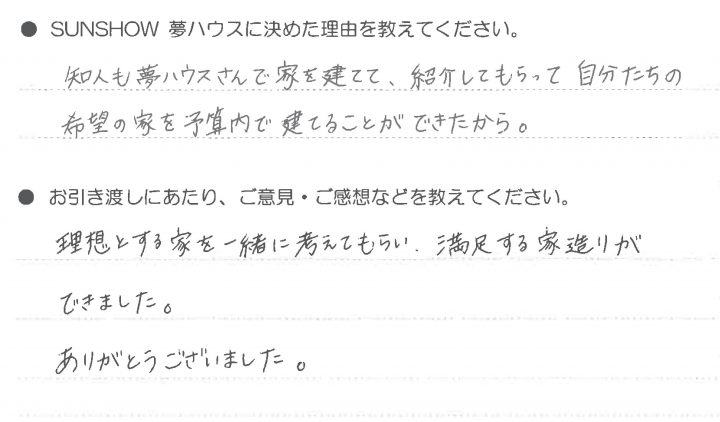 ● SUNSHOW 夢ハウスに決めた理由を教えてください。
知人も夢ハウスさんで家を建てて、紹介してもらって 自分たちの
希望の家を予算内で建てることができたから。
● お引き渡しにあたり、ご意見・ご感想などを教えてください。
理想とする家を一緒に考えてもらい、満足する家造りが
できました。
ありがとうございました。